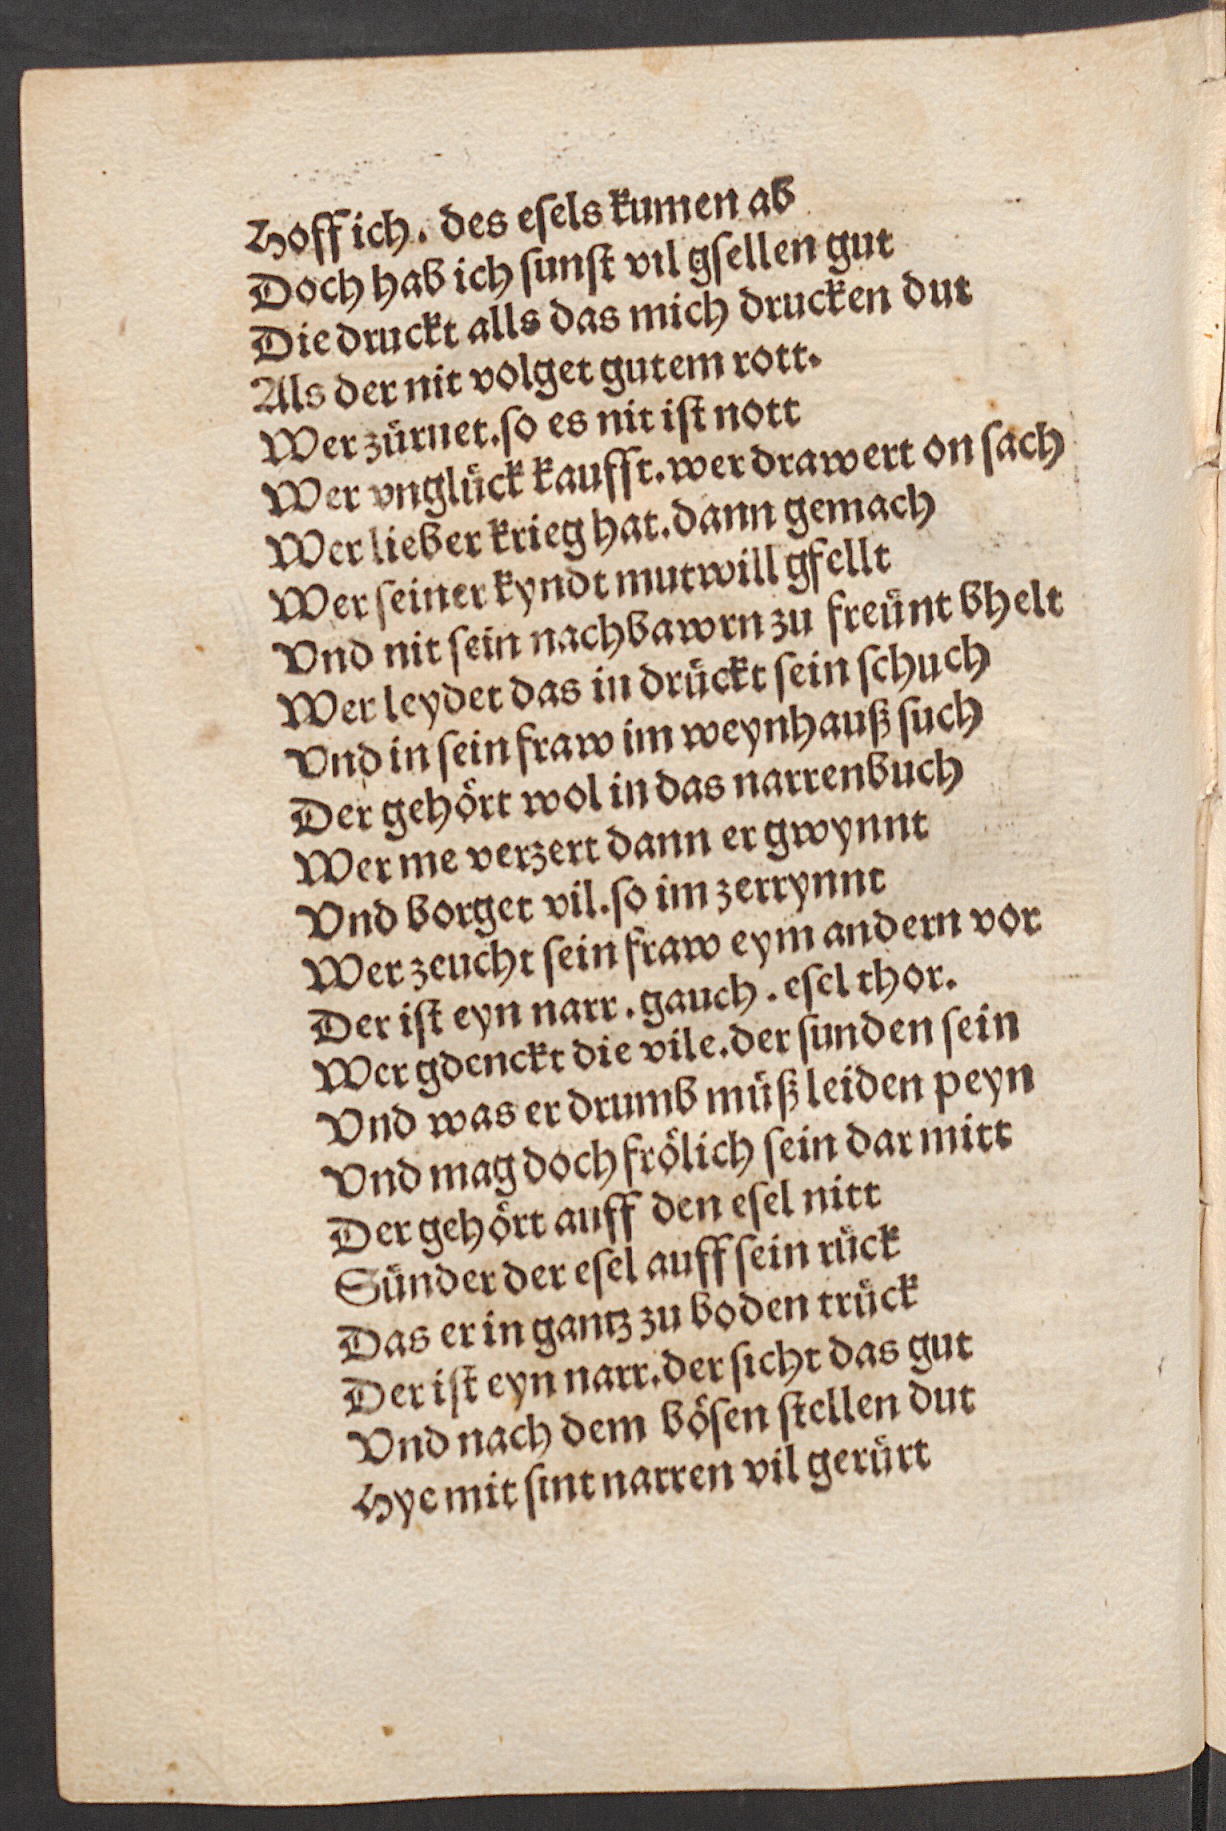 Hoff ich. des esels kumen ab
Doch hab ich sunst vil gsellen gut
Die druckt alls das mich drucken dut
Als der nit volget gutem rott.
Wer zürnet. so es nit ist nott
Wer vnglück kaufft. wer drawert on sach
Wer lieber krieg hat. dann gemach
Wer seiner kyndt mutwill gfellt
Vnd nit sein nachbawrn zu freünt bhelt
Wer leydet das in drückt sein schuch
Vnd in sein fraw im weynhauß such
Der gehört wol in das narrenbuch
Wer me verzert dann er gwynnt
Vnd borget vil. so im zerrynnt
Wer zeucht sein fraw eym andern vor
Der ist eyn narr. gauch. esel thor.
Wer gdenckt die vile. der sunden sein
Vnd was er drumb müß leiden peyn
Vnd mag doch frölich sein dar mitt
Der gehört auff den esel nitt
Sünder der esel auff sein rück
Das er in gantz zu boden trück
Der ist eyn narr. der sicht das gut
Vnd nach dem bösen stellen dut
Hye mit sint narren vil gerürt